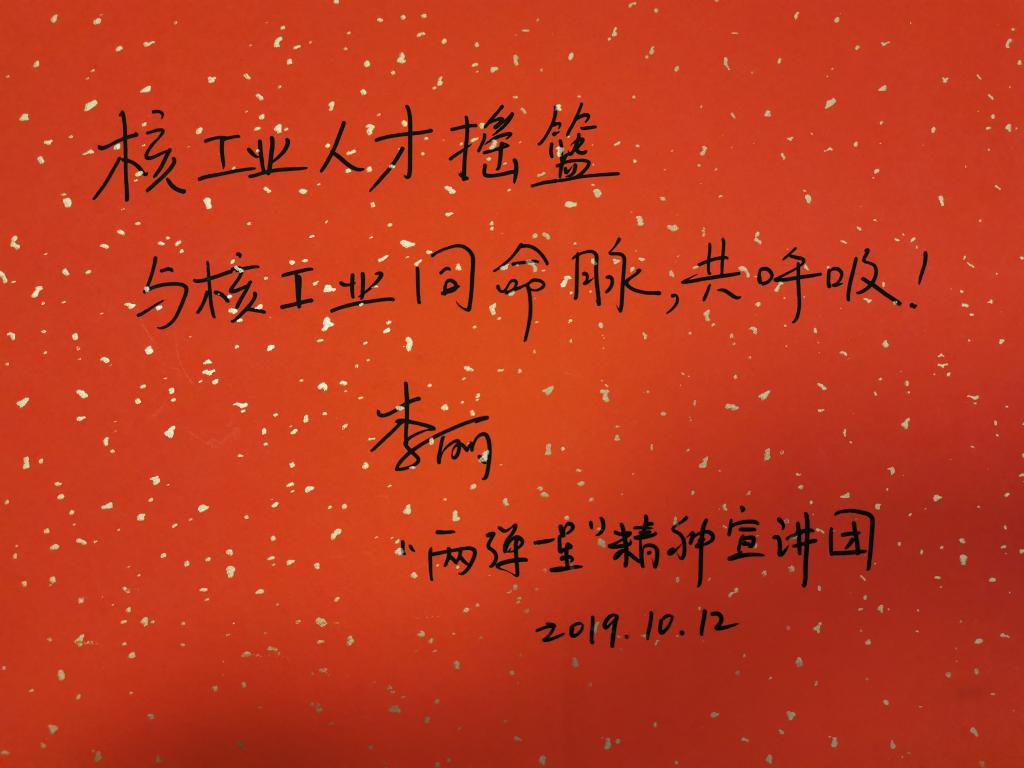 核工业人才摇篮
与核工业同命脉,共呼吸!
李丽
“两弹一星”精神宣讲团
2019.10.12